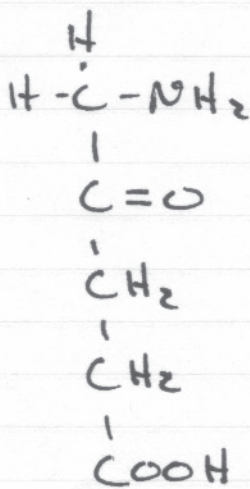 H
H-C-NH2
C=O
CH2
CH2
COOH